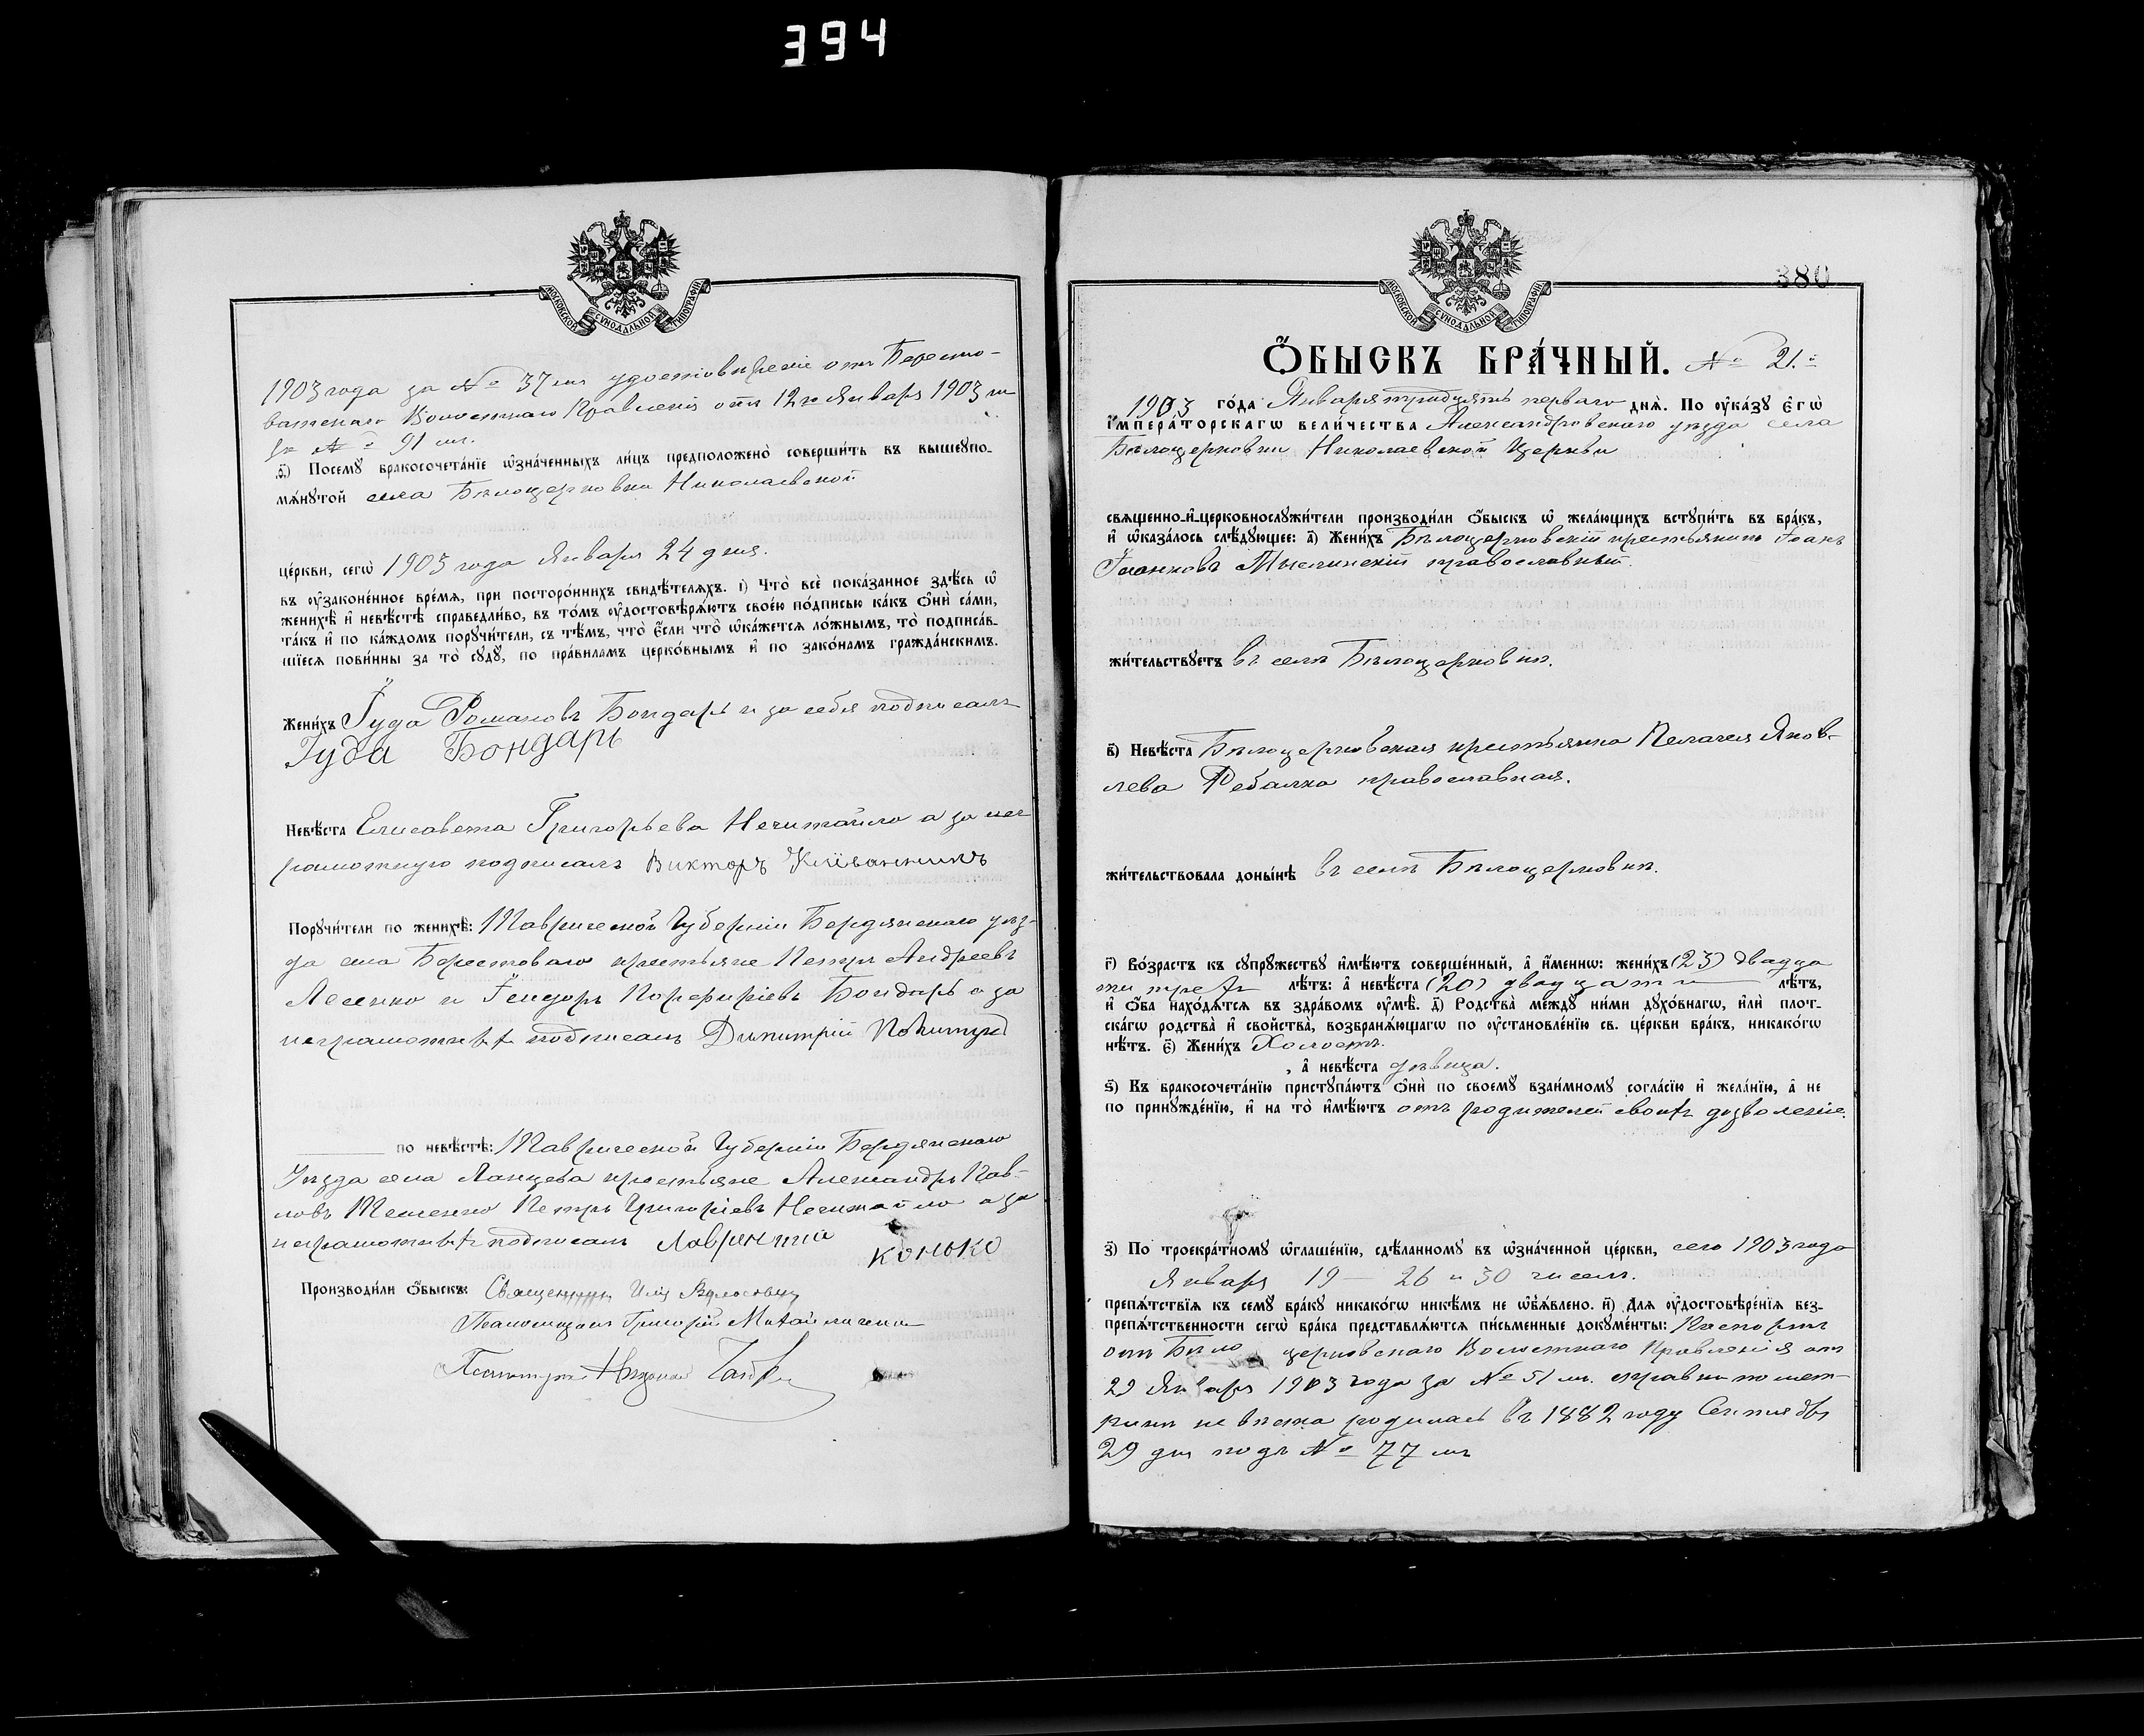 394
МОСКОВСКОЙ СѴНОДАЛЬНОЙ ТИПОГРАФІИ
1903 года за № 37 мъ удостовѣреніе отъ Бересто-
ваттскаго Волостнаго Правленія отъ 12 го Января 1903 го
за № 91 мъ.
ѳ҃) Посемꙋ̀ бракосочета́нїе ѡ҆зна́ченныхъ ли́цъ предположено̀ соверши́ть въ вышеꙋпо-
мѧ́нꙋтой села Бѣлоцерковки Николаевской
це́ркви, сегѡ̀ 1903 года Января 24 дня.
въ ᲂу҆зако́ненное вре́мѧ, при посторо́ннихъ свидѣ́телѧхъ. і҃) Что̀ всѐ пока́занное здѣ́сь ѡ҆
женихѣ̀ и҆ невѣ́стѣ справедли́во, въ то́мъ ᲂу҆достовѣрѧ́ютъ свое́ю по́дписью ка́къ ѻ҆нѝ са́ми,
та́къ и҆ по ка́ждомъ порꙋчи́тели, съ тѣ́мъ, что̀ є҆́сли что̀ ѡ҆ка́жетсѧ ло́жнымъ, то̀ подписа́в-
шїесѧ пови́нны за то̀ сꙋдꙋ̀, по пра́виламъ церко́внымъ и҆ по зако́намъ гражда́нскимъ.
Жени́хъ Іуда Романовъ Бондарь и за себя подписалъ
Іуда Бондарь
Невѣ́ста Елисавета Григорьева Нечитайло а за не
грамотную подписалъ Викторъ
Порꙋчи́тели по женихѣ̀: Таврической Губерніи Бердянскаго уѣз-
да села Берестоваго крестьяне Петръ Андреевъ
Лесенко и Порфиріевъ Бондарь а за
неграмотныхъ подписалъ Димитрій
по невѣ́стѣ: Таврической Губерніи Бердянскаго
Уѣзда села Ланцева крестьяне Александръ Пав-
ловъ Петръ Григоріевъ Нечитайло а за
неграмотныхъ подписалъ Лаврентій Конько
Производи́ли ѻ҆́быскъ: Священникъ Илія
Псаломщикъ Григорій
380
МОСКОВСКОЙ СѴНОДАЛЬНОЙ ТИПОГРАФІИ
Ѻ҆́БЫСКЪ БРА́ЧНЫЙ. № 21.
1903 го́да Января тридцать перваго днѧ̀. По ᲂу҆ка́зꙋ є҆гѡ̀
і҆мпера́торскагѡ вели́чества Александровскаго уѣзда села
Бѣлоцерковки Николаевской Церкви
свѧщенно-и҆-церковнослꙋжи́тели производи́ли ѻ҆́быскъ ѡ҆ жела́ющихъ встꙋпи́ть въ бра́къ,
и҆ ѡ҆каза́лось слѣ́дꙋющее: а҃) Жени́хъ Бѣлоцерковскій крестьянинъ Іоанъ
Іоанновъ Мыслинскій православный.
жи́тельствꙋетъ въ селѣ Бѣлоцерковкѣ.
в҃) Невѣ́ста Бѣлоцерковская крестьянка Пелагея Яков-
лева Ребалка православная.
жи́тельствовала доны́нѣ въ селѣ Бѣлоцерковкѣ.
г҃) Во́зрастъ къ сꙋпрꙋ́жествꙋ и҆мѣ́ютъ соверше́нный, а҆ и҆́меннѡ: жени́хъ (23) двадца
ти трехъ лѣ́тъ: а҆ невѣ́ста (20) двадцати лѣ́тъ,
и҆ ѻ҆́ба нахо́дѧтсѧ въ здра́вомъ ᲂу҆мѣ̀. д҃) Родства̀ ме́ждꙋ ни́ми дꙋхо́внагѡ, и҆лѝ плот-
ска́гѡ родства̀ и҆ сво́йства̀, возбранѧ́ющагѡ по ᲂу҆становле́нїю св. це́ркви бра́къ, никако́гѡ
нѣ́тъ. є҃) Жени́хъ Холостъ.
, а҆ невѣ́ста дѣвица.
ѕ҃) Къ бракосочета́нїю пристꙋпа́ютъ ѻ҆нѝ по своемꙋ̀ взаи́мномꙋ согла́сїю и҆ жела́нїю, а҆ не
по принꙋжде́нїю, и҆ на то̀ и҆мѣ́ютъ отъ родителей своихъ дозволеніе.
з҃) По троекра́тномꙋ ѡ҆глаше́нїю, сдѣ́ланномꙋ въ ѡ҆зна́ченной це́ркви, сего 1903 года
Января 19 – 26 и 30 чиселъ.
препѧ́тствїѧ къ семꙋ̀ бра́кꙋ никако́гѡ никѣ́мъ не ѡ҆б̾ѧ́влено. и҃) Длѧ ᲂу҆достовѣре́нїѧ без-
препѧ́тственности сегѡ̀ бра́ка представлѧ́ютсѧ пи́сьменные докꙋме́нты: Паспортъ
отъ Бѣло церковскаго Волостнаго Правленія отъ
29 Января 1903 года за № 51 мъ. справки по мет-
рикѣ невѣста родилась въ 1882 году Сентября
29 дня подъ № 77 мъ